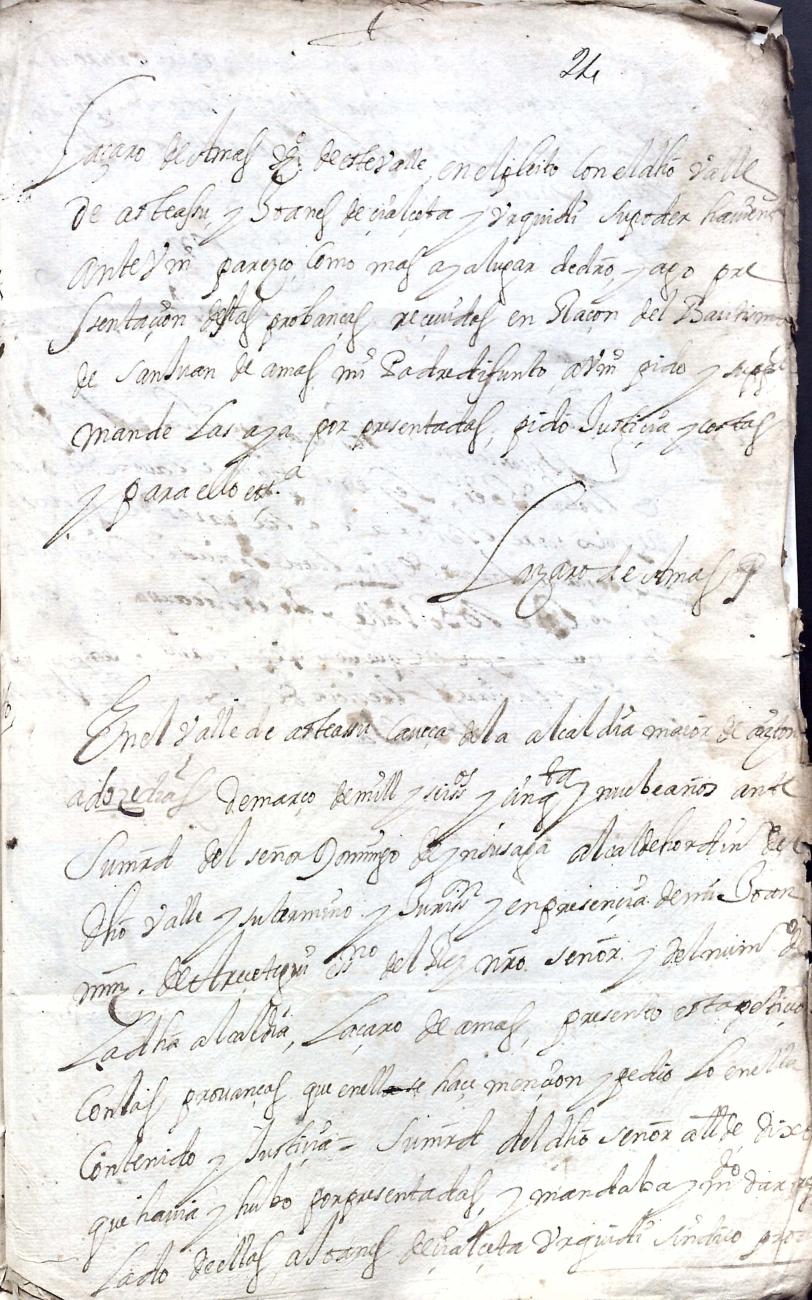 24
Laçaro de Amas Vº. de este Valle, en el pleito con el dhō Valle
de asteassu, y Joanes de çialçeta y Urquidi su poder havient
ante Vm parezco, como mas aya lugar de drō, y ago pre
sentaçion destas probanças reçiuidas en Raçon del Bautismo
de San Juan de amas mi Padre difunto, a Vm pido y supco
mande Las aya por presentadas, pido Justiçia y costas
y para ello ettª
Lazaro de Amas
En el Valle de asteasu caueça de la alcaldia maior de ayzton
a doze dias de março de mill y seisos y cinqta y nuebe años ante
Sumrd del señor Domingo de ynsusaga alcalde hordinº del
dhō Valle y su termino y Jurison y en presençia de mi Joan
mnz. de essnº del Rey nrō señor y del numº de
La dhā alcaldia, Laçaro de amas, presento esta petiçion
con las prouanças que en ella se haçe mençion y pedio lo en ella
Contenido y Justiçia = Sumrd del dhō señor allde dixo
que hauia y hubo por presentadas, y mandaba y mdo dar tras
Lado de ellas, a Joanes de çialçeta Urquidi sindico pro